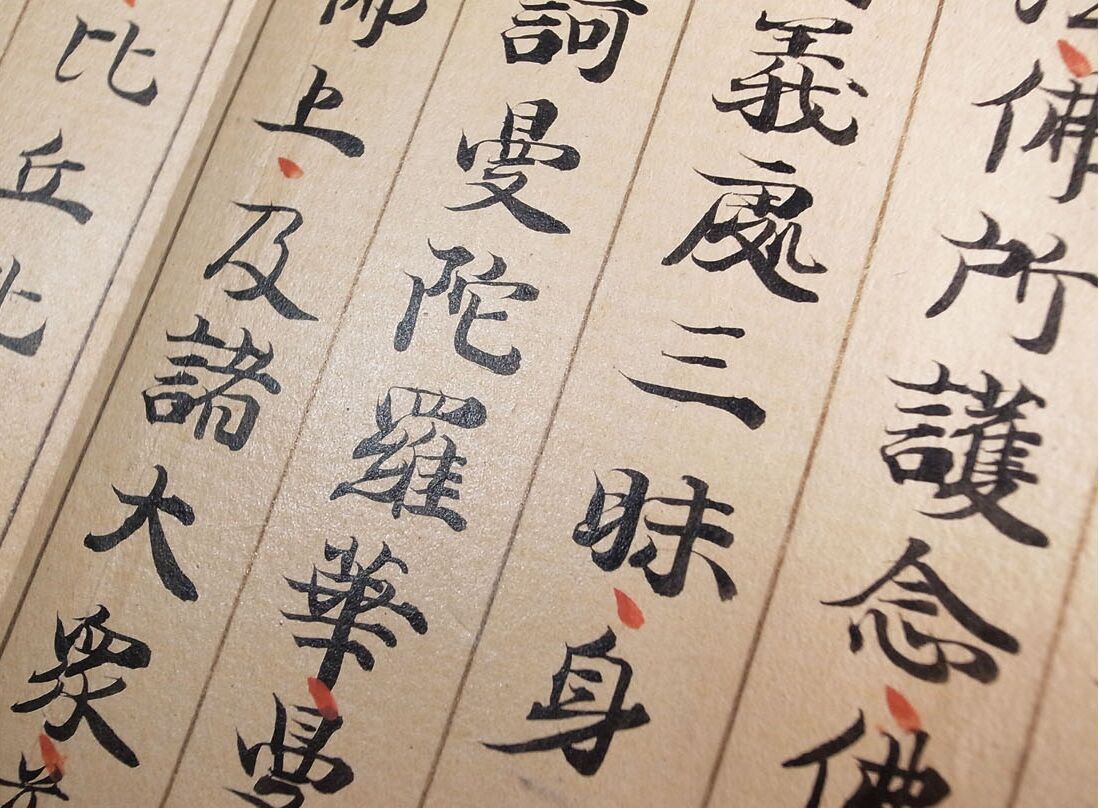 佛所護念佛
義處三昧身
訶曼陀羅華曼
上及諸大眾
比丘比